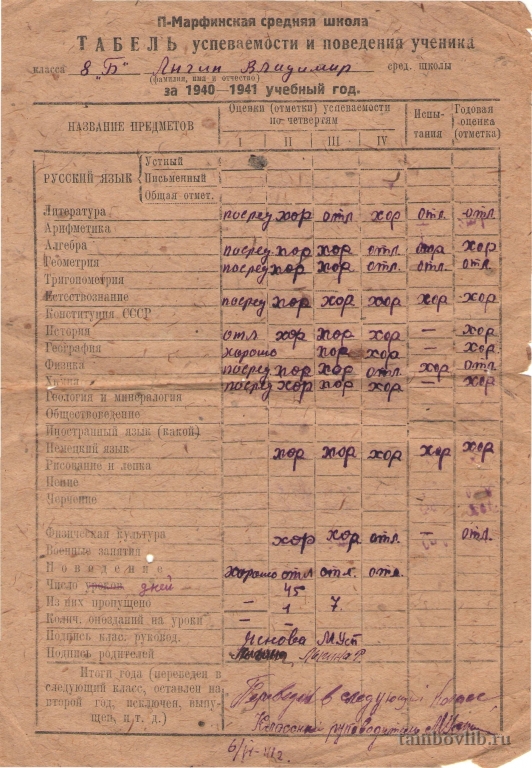 П-Марфинская средняя школа
ТАБЕЛЬ успеваемости и поведения ученика
класса 8 „Б" Лычин Владимир сред. школы
(фамилия, имя и отчество)
за 1940—1941 учебный год.
НАЗВАНИЕ ПРЕДМЕТОВ Оценки (отметки) успеваемости по четвертям Испытания Годовая оценка (отметка)
I II III IV
РУССКИЙ ЯЗЫК Устный
Письменный
Общая отмет.
Литература посред хор отл хор отл. отл.
Арифметика
Алгебра посред хор хор отл. хор
Геометрия посред хор хор отл. отл отл.
Тригонометрия
Естествознание посред хор хор хор хор хор
Конституция СССР
История отл хор хор хор — хор
География хорошо хор хор — хор
Физика посред хор хор отл. хор отл
Химия посред хор хор хор — хор
Геология и минералогия
Обществоведение
Иностранный язык (какой)
Немецкий язык хор хор хор хор хор
Рисование и лепка
Пение
Черчение
Физическая культура хор хор отл. — отл.
Военные занятия
Поведение хорошо отл отл. отл.
Число уроков дней 45
Из них пропущено — 1 7.
Колич. опозданий на уроки — —
Подпись клас. руковод.
Подпись родителей
Итоги года (переведен в
следующий класс, оставлен на
второй год, исключен, выпу-
щен, и т. д.)
Переведен в следующий класс
Классный руководитель
tambovlib.ru